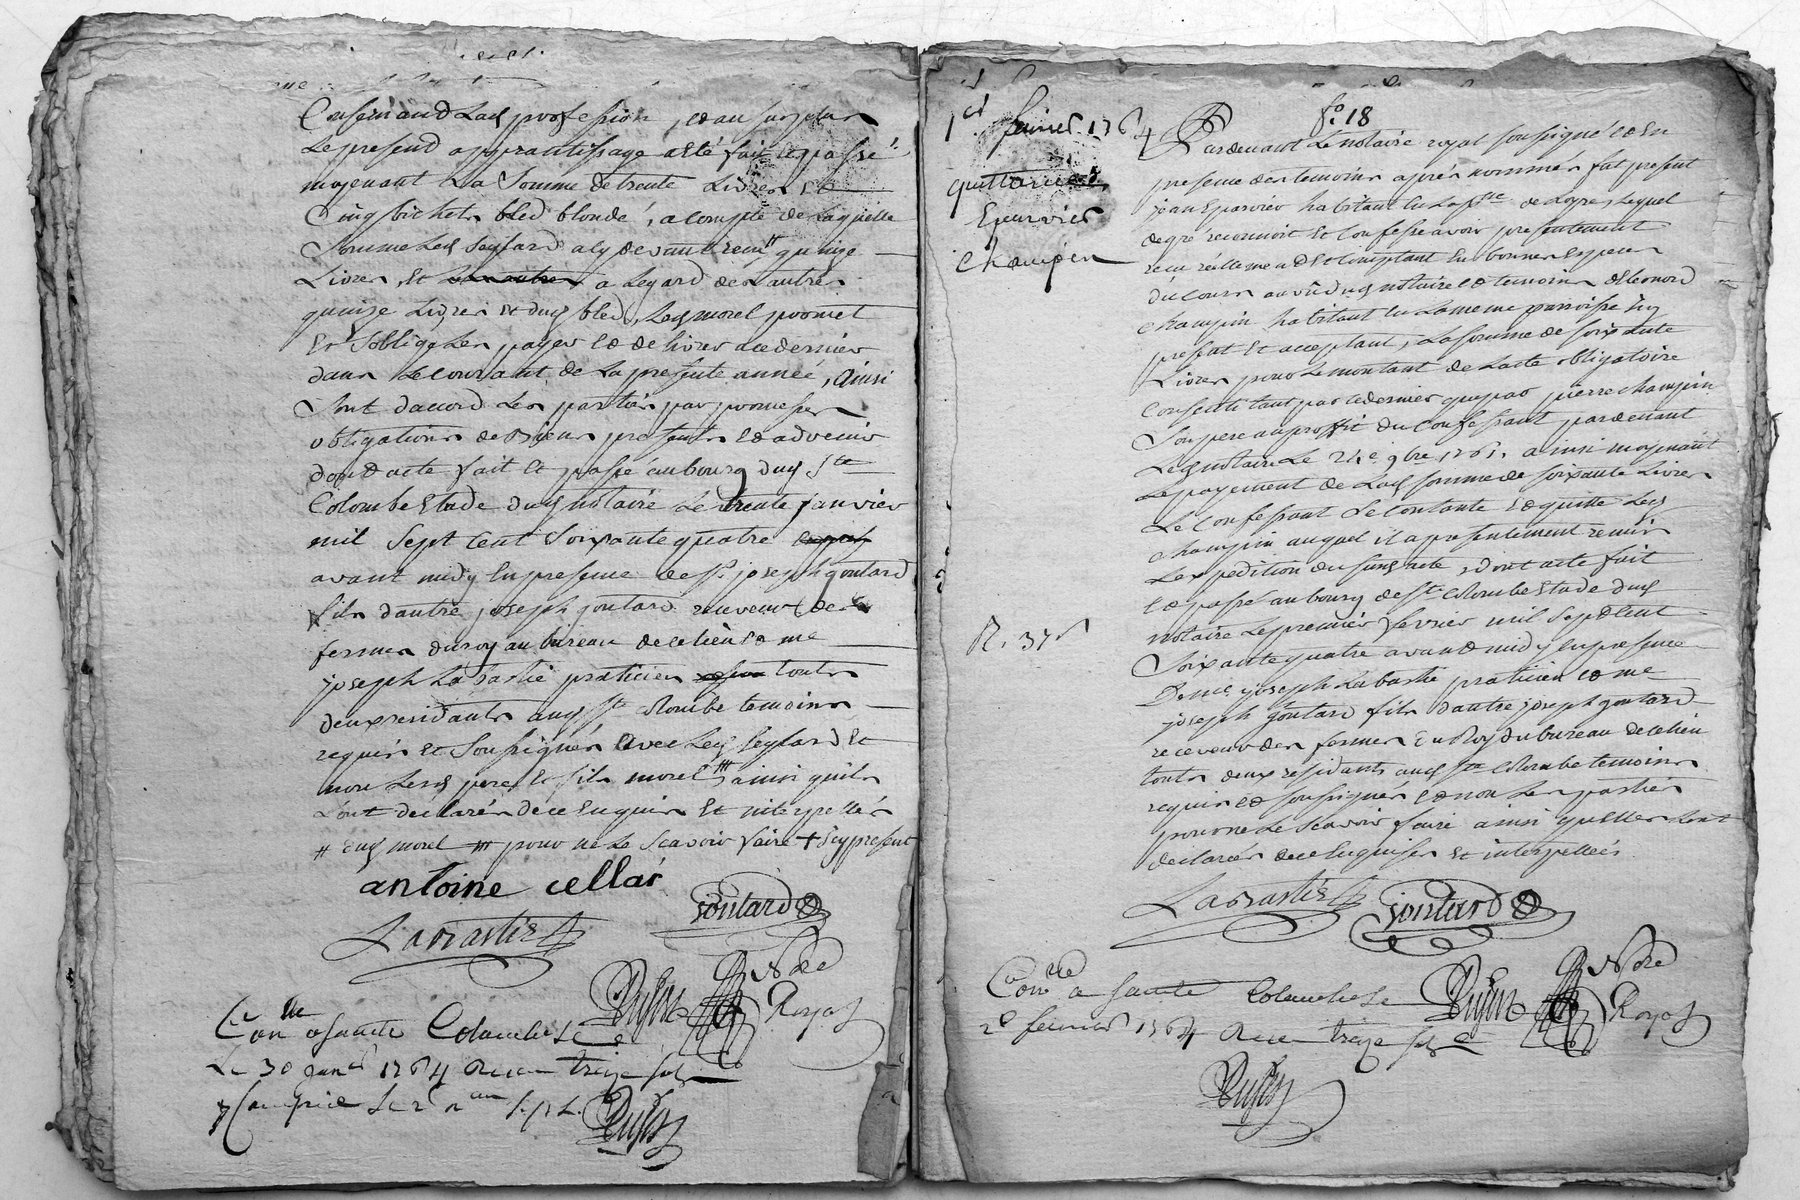 Concernand Lad profession, et au surplus
Le present apprantissage a été fait et passé
moyenant La Somme de trente Livres et
Cinq bichets bled blondé, a compte de laquelle
Somme led Seylard a cy devant recu # quinze
Livres, Et a Legard des autres
quinze Livres et dud bled, Led morel promet
Et Soblige Les payer et de livrer a ce dernier
dans Le courant de La presente année, ainsi
Sont daccord Les parties par promesses
obligations de biens presents et advenir
dont acte fait et passé au bourg dud Ste
Colombe Etude dud notaire Le trente janvier
mil Sept Cent Soixante quatre
avant midy En presence de Sr joseph goutard
fils dautre joseph goutard receveur des
fermes du roy au bureau de ce lieu et me
joseph Labastie praticien touts
deux residants aud Ste Colombe temoins
requis et Soussignés avec Led Seylard Et
non Lesd pere et fils morel ainsi quils
Lont déclarés de ce Enquis Et interpellés
# dud morel pour ne Le Scavoir faire + cy present
antoine cellar
Labastie goutard
Not re
Royal
Con lle a Sainte Colombe Le
Le 30 janr 1764 Recu treize sols
1er fevrier 1764
quittance
Epervier
Champin
R. 37 s
fo. 18
Pardevant Le notaire royal soussigné et En
presence des temoins après nommés fut present
jean Epervier habitant En La psse de Loyre, Lequel
de gré reconnoit Et Confesse avoir presentement
recu réellement Et Comptant En bonnes Especes
du Cours au vû dud notaire et temoins d Leonord
Champin habitant En La meme parroisse icy
present et acceptant, La Somme de soixante
Livres pour Le montant de Lacte obligatoire
Consenti tant par ce dernier que par pierre champin
Son pere au proffit du Confessant pardevant
Led notaire Le 24e 9bre 1761. ainsi moyenant
Le payement de Lad somme de soixante Livres
Le Confessant Se Contente et quitte Led
Champin auquel il a presentement remis
Lexpedition du Susd acte, dont acte fait
et passé au bourg de Ste Colombe Etude dud
notaire Le premier fevrier mil Sept Cent
Soixante quatre avant midy En presence
De me joseph Labastie praticien et me
joseph goutard fils dautre joseph goutard
receveur des fermes du Roy du bureau de ce lieu
touts deux residants aud Ste Colombe temoins
requis et soussignés et non Les parties
pour ne Le Scavoir faire ainsi quelles Lont
declarées de ce Enquises Et interpellées
Labastie goutard
Not re
Royal
Con lle a Sainte Colombe Le
2e fevrier 1764 Recu treize sols